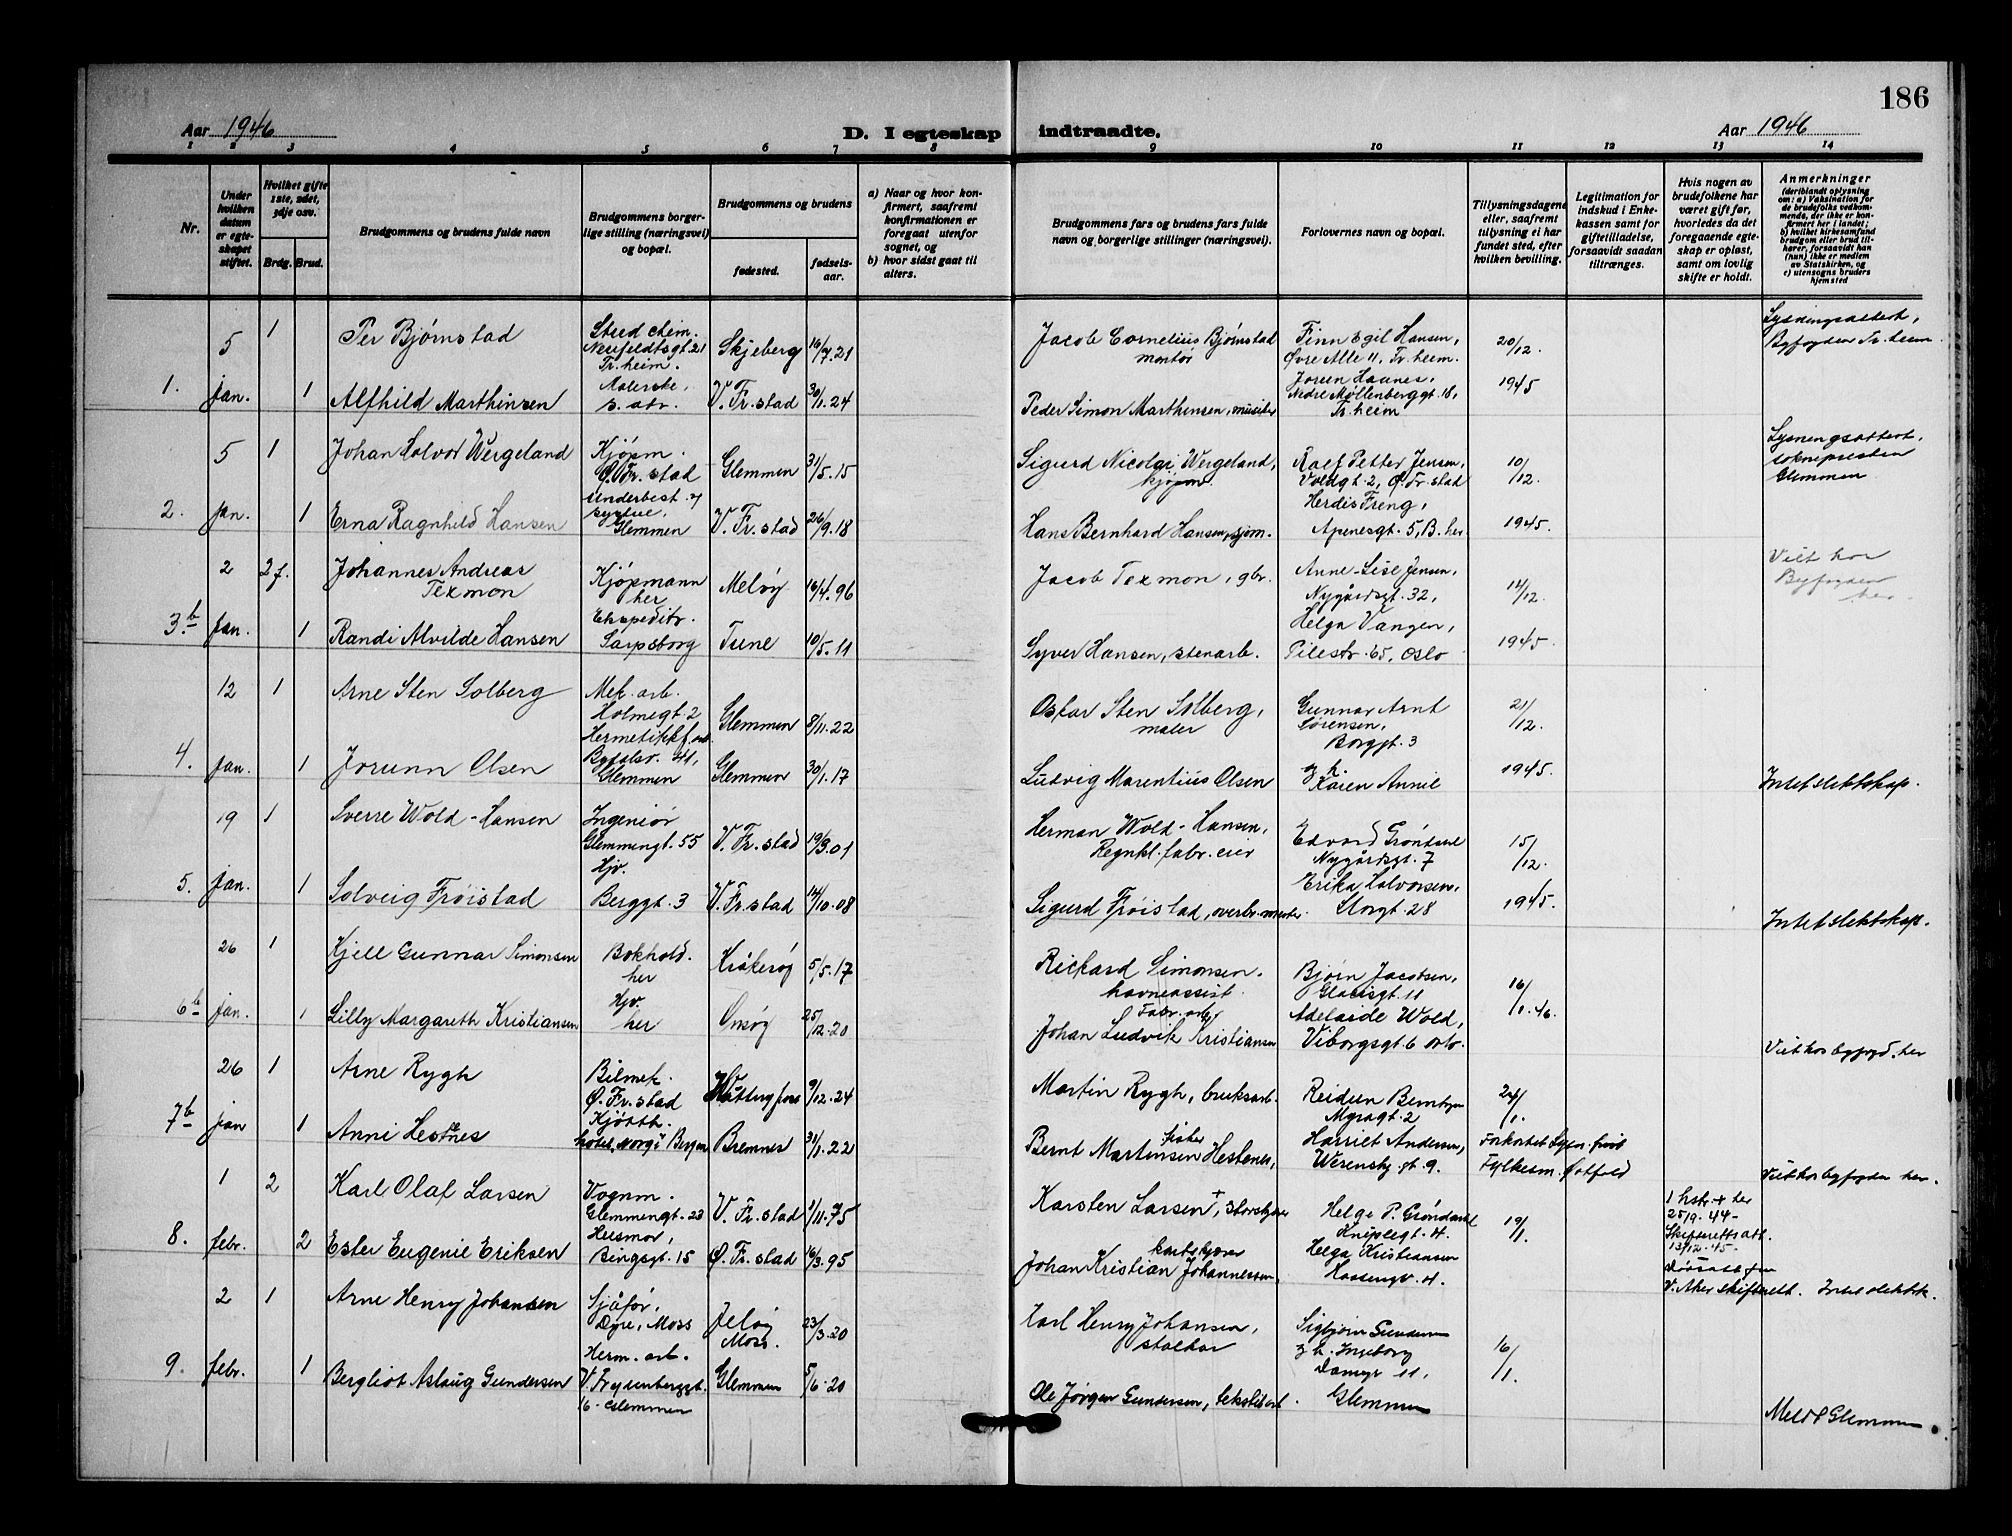 186
Aar 1946
D. I egteskap indtraadte.
Aar 1946
1 2 3 4 5 6 7 8 9 10 11 12 13 14
Nr.
Under hvilken datum er egteskapet stiftet.
Hvilket gifte 1ste, 2det, 3dje osv.
Brdg. Brud.
Brudgommens og brudens fulde navn
Brudgommens borgerlige stilling (næringsvei) og bopæl.
Brudgommens og brudens
fødested.
fødselsaar.
a) Naar og hvor konfirmert, saafremt konfirmationen er foregaat utenfor sognet, og
b) hvor sidst gaat til alters.
Brudgommens fars og brudens fars fulde navn og borgerlige stillinger (næringsvei).
Forlovernes navn og bopæl.
Tillysningsdagene eller, saafremt tillysning ei har fundet sted, efter hvilken bevilling.
Legitimation for indskud i Enkekassen samt for giftetilladelse, forsaavidt saadan tiltrænges.
Hvis nogen av brudefolkene har været gift før, hvorledes da det foregaaende egteskap er opløst, samt om lovlig skifte er holdt.
Anmerkninger
(deriblandt oplysning om: a) Vaksination for de brudefolks vedkommende, der ikke er konfirmert her i landet; b) hvilket kirkesamfund brudgom eller brud tilhører, forsaavidt han (hun) ikke er medlem av Statskirken, og c) utensogns bruders hjemsted
1. 5 jan.
1 Per Bjørnstad
Stud chem. Neufeldtsgt. 21 Tr.heim.
Skjeberg 16/7.21
Jacob Cornelius Bjørnstad montør
Finn Egil Hansen, Øvre Alle 11, Tr.heim.
20/12. 1945
Lysningsattest, Byfogden Tr.heim
1 Alfhild Marthinsen
s. atr.
V. Fr.stad 30/1.24
Peder Simon Marthinsen, musiker
Nedre Møllenberggt. 18, Tr.heim
2. 5 jan.
1 Johan Halvor Wergeland
Kjøpm. Ø. Fr.stad
Glemmen 31/5.15
Sigurd Nicolai Wergeland, kjøpm.
Rolf Petter Jensen, Voldgt. 2, Ø. Fr.stad
10/12. 1945.
Lysningsattest, soknepresten Glemmen
1 Erna Ragnhild Hansen
Glemmen
V. Fr.stad 26/9.18
Hans Bernhard Hansen, sjøm.
Herdis Freng, Apenesgt. 5, B. her
3.b 2 jan.
2 f. Johannes Andreas Texmon
Kjøpmann her
Meløy 16/4.96
Jacob Texmon, gbr.
Anne-Lise Jensen, Nygårdsgt. 32,
14/12. 1945.
Viet hos Byfogden her.
1 Randi Alvilde Hansen
Ekspeditr. Sarpsborg
Tune 10/5.11
Syver Hansen, stenarb.
Helga Vangen, Pilestr. 65, Oslo
4. 12 jan.
1 Arne Sten Solberg
Mek. arb. Holmegt. 2
Glemmen 8/11.22
Oskar Sten Solberg, maler
Gunnar Arnt Sørensen, Borggt. 3
21/12. 1945.
1 Jorunn Olsen
Hermetikkf.arb. 41, Glemmen
Glemmen 30/1.17
Ludvig Marentius Olsen
g h. Karen Annie
Intet slektskap.
5. 19 jan.
1 Sverre Wold-Hansen
Ingeniør Glemmengt. 55
V. Fr.stad 19/3.01
Herman Wold-Hansen, Regnkl. fabr. eier
Edvard Grøndahl Nygårdsgt. 7
15/12. 1945.
1 Solveig Frøistad
Hjv. Berggt. 3
V. Fr.stad 14/10.08
Sigurd Frøistad, overbr.mester
Erika Halvorsen, Storgt. 28
Intet slektskap.
6b 26 jan.
1 Kjell Gunnar Simonsen
Bokhold. her
Kråkerøy 5/5.17
Richard Simonsen. havneassist.
Bjørn Jacobsen, Glacisgt. 11
16/1.46.
1 Lilly Margareth Kristiansen
Hjv. her
Onsøy 25/12.20
Fabr. arb. Johan Ludvik Kristiansen
Adelaide Wold, Viborgsgt. 6 Oslo.
Viet hos byfogd. her
7b 26 jan
1 Arne Rygh
Bilmek. Ø. Fr.stad
9/12.24
Martin Rygh, bruksarb.
Reidun Berntzen Myragt. 2
24/1.
1 Anni Hestnes
hotel Norge Bergen
Bremnes 31/1.22
fisker Bernt Martinsen Hestenes,
Harriet Andersen, gt. 9.
Forkortet lysn. frist Fylkesm. Østfold
Viet hos byfogden her.
8. 1 febr.
2 Karl Olaf Larsen
Vognm. Glemmengt. 23
V. Fr.stad 1/11.75
Karsten Larsen +,
Helge P. Grøndahl Kniplegt. 4.
19/1.
1 hstr. + her 25/9.44 - Skifteretts att. 13/12.45 -
2 Ester Eugenie Eriksen
Husmor, Ringsgt. 15
Ø. Fr.stad 16/3.95
Johan Kristian Johannessen,
Helga Kristiansen 4.
V. Aker skifterett. Intet slektsk.
9. 2 febr.
1 Arne Henry Johansen
Sjåfør, Dyre, Moss
Jeløy Moss. 23/3.20
Karl Henry Johansen,
Sigbjørn Gundersen g h. Ingeborg Damgr 11, Glemmen
16/1.
1 Bergliot Aslaug Gundersen
Herm. arb. 16 - Glemmen
Glemmen 5/6.20
Ole Jørgen Gundersen, tekstilarb.
Meld Glemmen